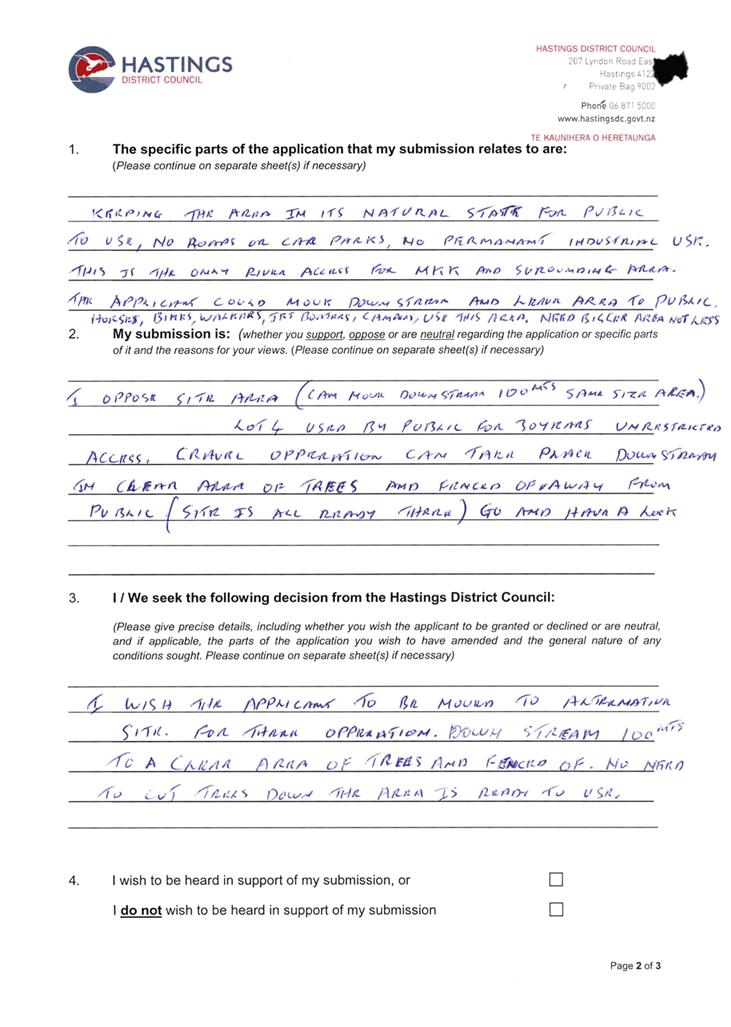 HASTINGS
DISTRICT COUNCIL
HASTINGS DISTRICT COUNCIL
207 Lyndon Road East
Hastings 4122
Private Bag 9002
Phone 06 871 5000
www.hastingsdc.govt.nz
TE KAUNIHERA O HERETAUNGA
1. The specific parts of the application that my submission relates to are:
(Please continue on separate sheet(s) if necessary)
KEEPING THE AREA IN ITS NATURAL STATE FOR PUBLIC
TO USE, NO ROADS OR CAR PARKS, NO PERMANANT INDUSTRIAL USE.
THIS IS THE ONLY RIVER ACCESS FOR MKK AND SUROUNDING AREA.
THE APPLICANT COULD MOVE DOWN STREAM AND LEAVE AREA TO PUBLIC.
HORSES, BIKES, WALKERS, JET BOATERS, CAMPERS, USE THIS AREA. NEED BIGGER AREA NOT LESS
2. My submission is: (whether you support, oppose or are neutral regarding the application or specific parts
of it and the reasons for your views. (Please continue on separate sheet(s) if necessary)
I OPPOSE SITE AREA (CAN MOVE DOWNSTREAM 100MTS SAME SIZE AREA.)
LOT 4 USED BY PUBLIC FOR 30 YEARS UNRESTRICTED
ACCESS. GRAVEL OPPERATION CAN TAKE PLACE DOWN STREAM
IN CLEAR AREA OF TREES AND FENCED OF AWAY FROM
PUBLIC (SITE IS ALL READY THERE) GO AND HAVE A LOOK
3. I / We seek the following decision from the Hastings District Council:
(Please give precise details, including whether you wish the applicant to be granted or declined or are neutral,
and if applicable, the parts of the application you wish to have amended and the general nature of any
conditions sought. Please continue on separate sheet(s) if necessary)
I WISH THE APPLICANT TO BE MOVED TO ALTERNATIVE
SITE. FOR THERE OPPERATION. DOWN STREAM 100MTS
TO A CLEAR AREA OF TREES AND FENCED OF. NO NEED
TO CUT TREES DOWN THE AREA IS READY TO USE.
4. I wish to be heard in support of my submission, or
I do not wish to be heard in support of my submission
Page 2 of 3